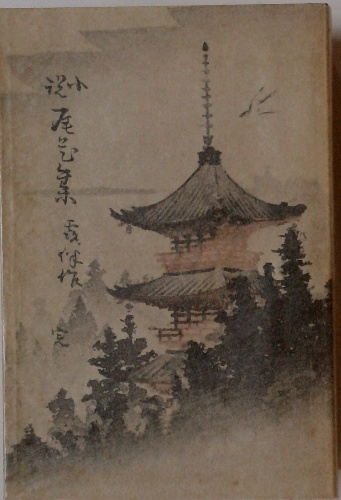 小説
尾花集 露伴作 完